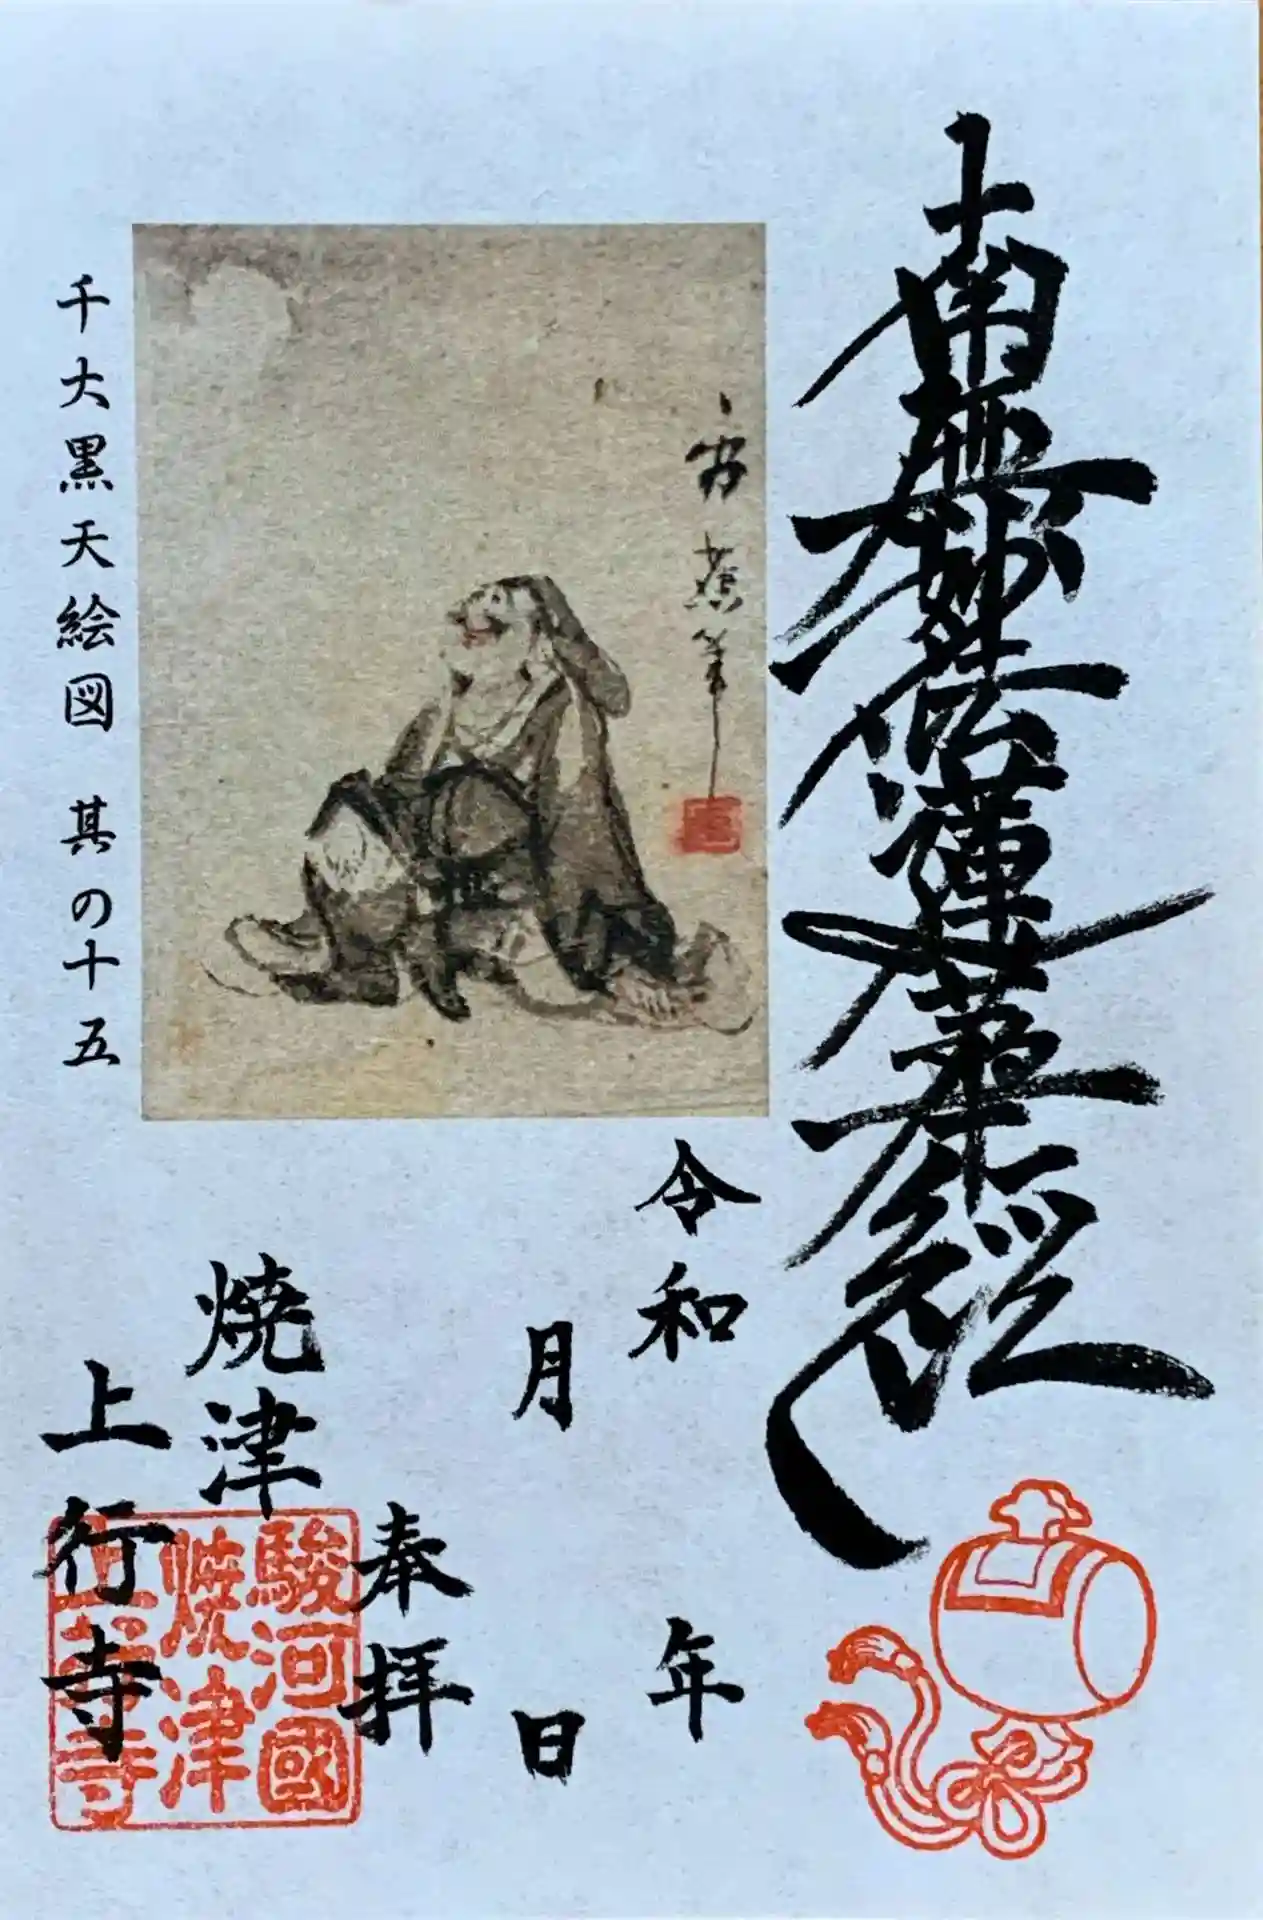 南無妙法蓮華経
令和 年
月 日
奉拝
焼津
上行寺
駿河國
焼津
上行寺
蕉筆
千大黒天絵図 其の十五